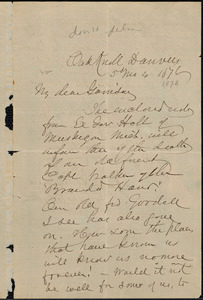 Oak Knoll Danvers
5th Mo 4 1878
1878
My dear Garrison
The enclosed note
from Ex Gov Hall of
Muskegon Mich. will
inform thee of the death
of our old friend
Capt. Walker of the
"Branded Hand".
Our old frd Goodell
I see has also gone
on. How soon the places
that have known us
will know us no more
forever! — Would it not
be well for some